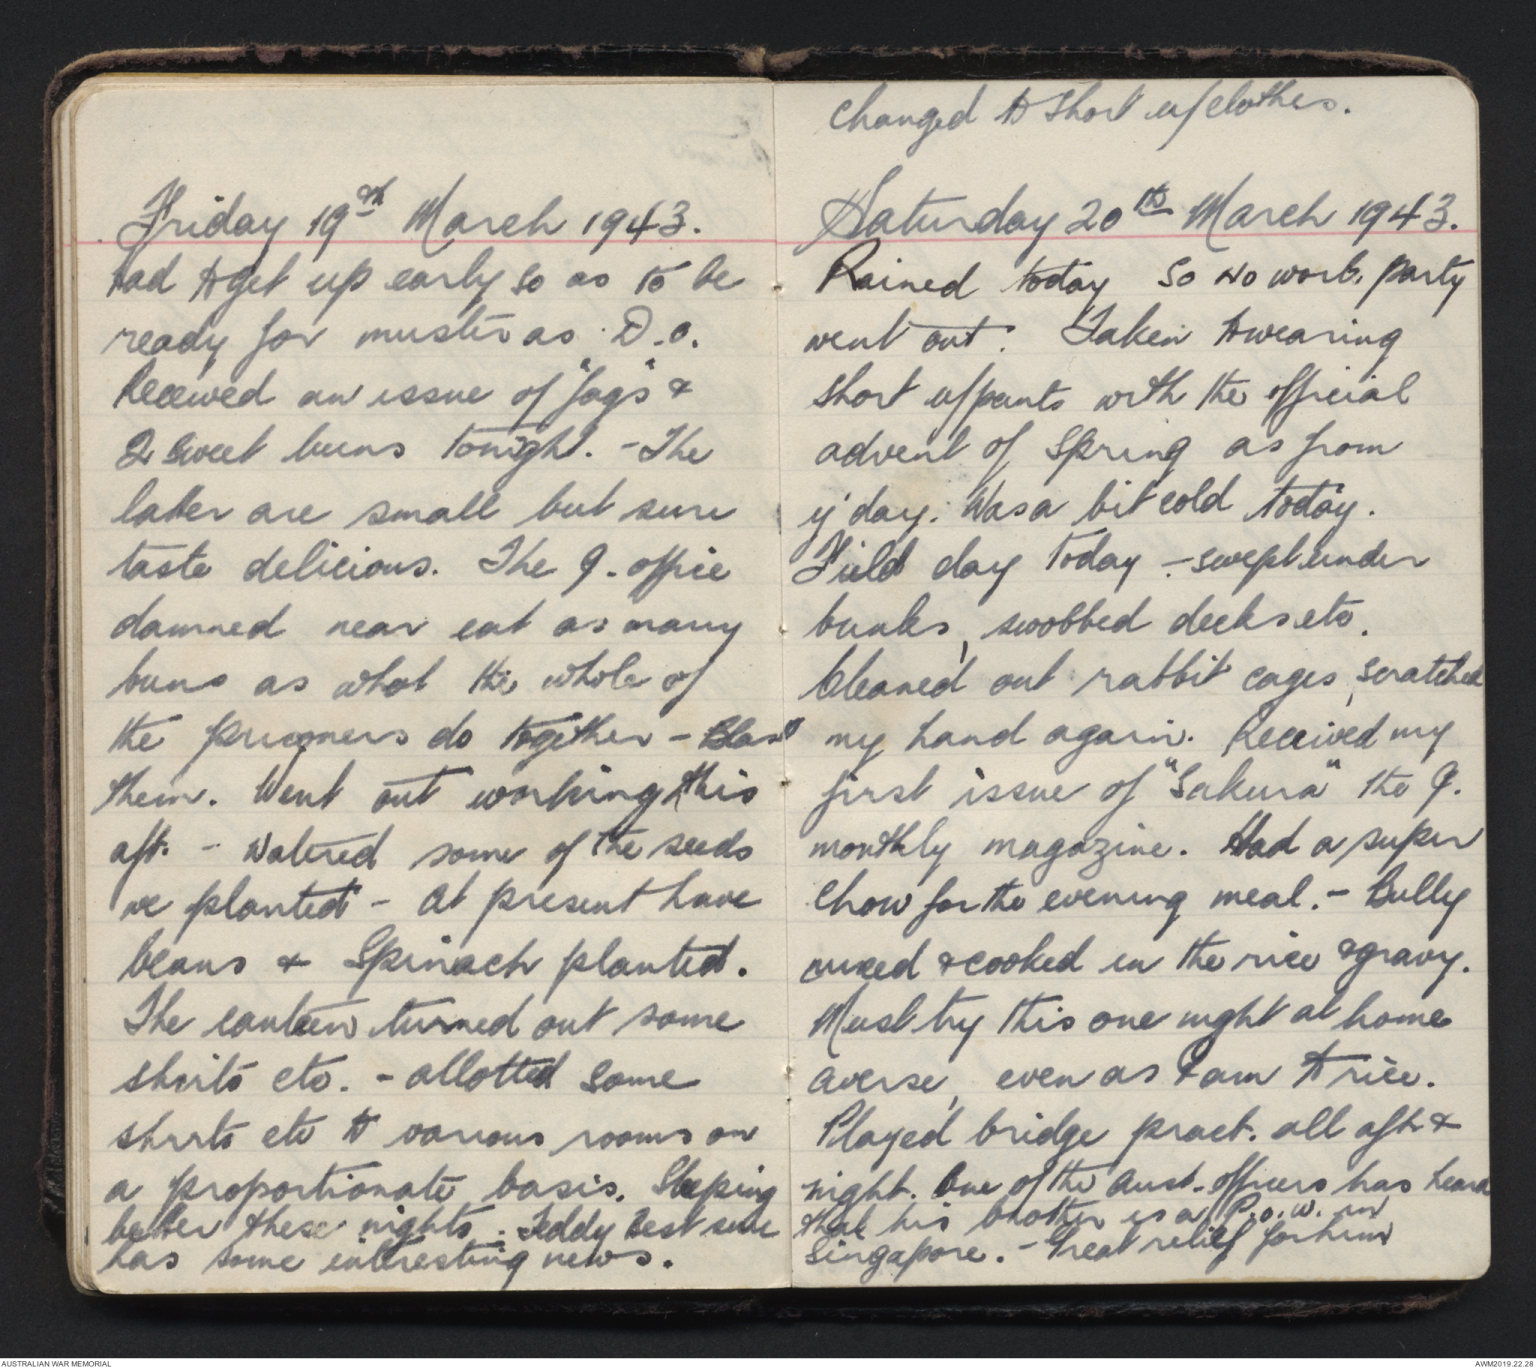 Friday 19th March 1943.
Had to get up early so as to be
ready for muster as D.O.
Received an issue of "fags" &
2 sweet buns tonight. - The
latter are small but sure
taste delicious. The J. office
damned near eat as many
buns as what the whole of
the prisoners do together - Blast
them. Went out working this
aft. - Watered some of the seeds
we planted - At present have
beans & Spinach planted.
The canteen turned out some
shirts etc. - allotted some
shirts etc to various rooms on
a proportionate basis. Sleeping
better these nights. Teddy Best sure
has some interesting news.
Changed to short u/clothes.
Saturday 20th March 1943.
Rained today so no work party
went out. Taken to wearing
short u/pants with the official
advent of Spring as from
y'day. Was a bit cold today.
Field day today - swept under
bunks, swobbed decks etc.
Cleaned out rabbit cages, scratched
my hand again. Received my
first issue of "Sakura" the J.
monthly magazine. Had a super
chow for the evening meal. - Bully
mixed & cooked in the rice & gravy.
Must try this one night at home
averse, even as I am to rice.
Played bridge pract. all aft &
night. One of the Aust. officers has heard
that his brother is a P.O.W. in
Singapore. - Great relief for him
AUSTRALIAN WAR MEMORIAL
AWM2019.22.28